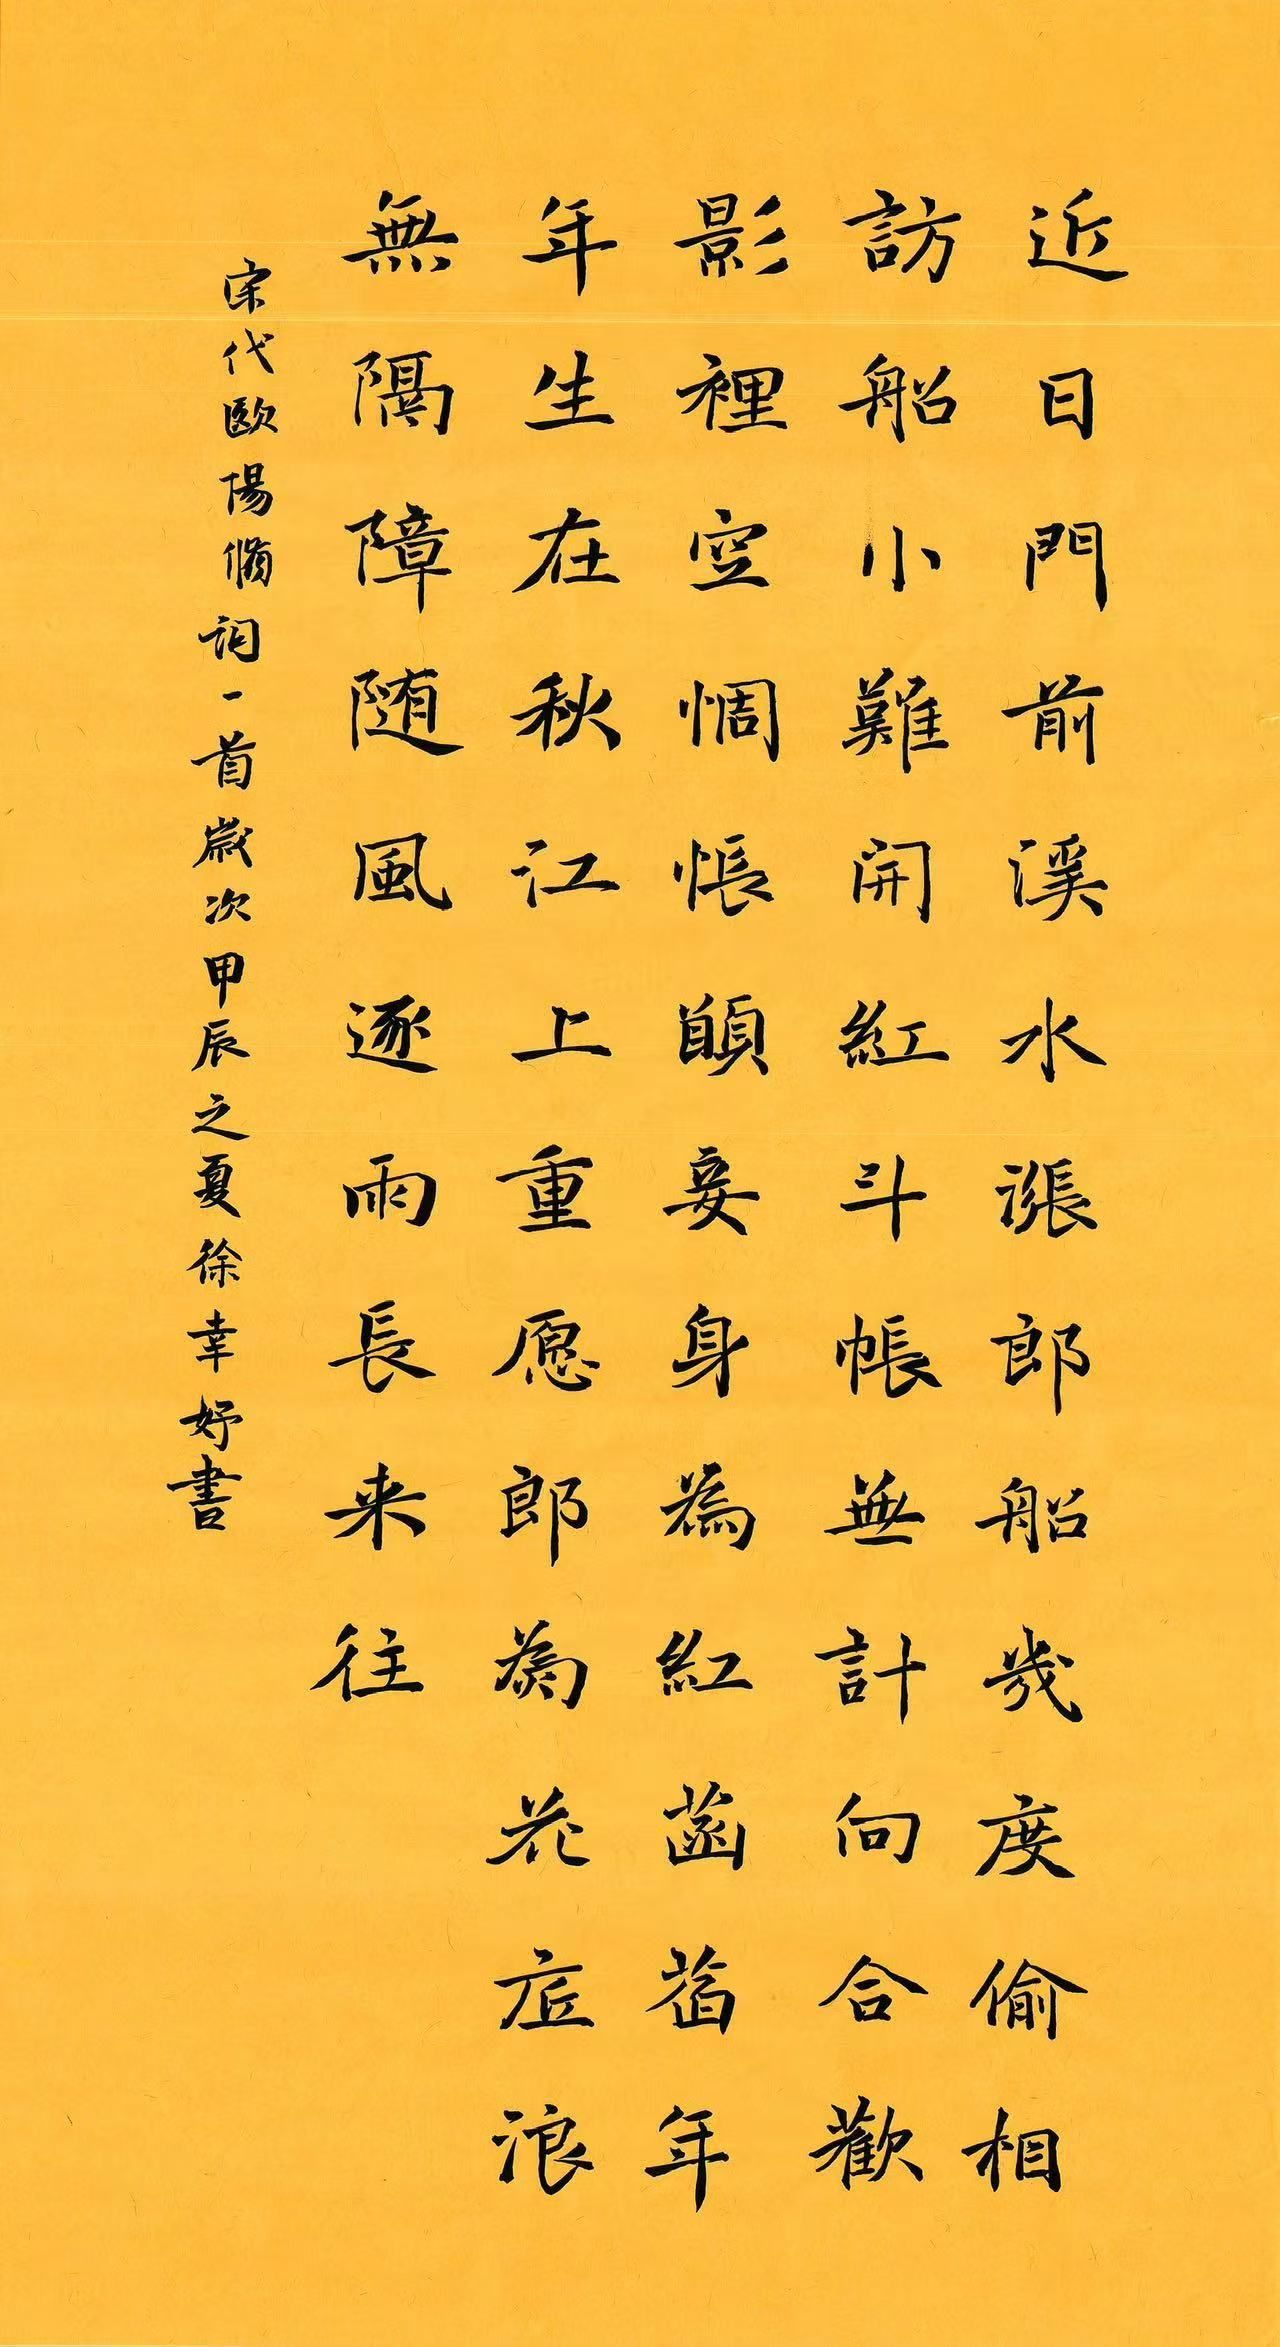 近日門前溪水漲郎船幾度偷相
訪船小難開紅斗帳無計向合歡
影裡空惆悵願妾身為紅菡萏年
年生在秋江上重愿郎為花底浪
無隔障随風逐雨長来往
宋代歐陽脩詞一首歲次甲辰之夏徐幸妤書